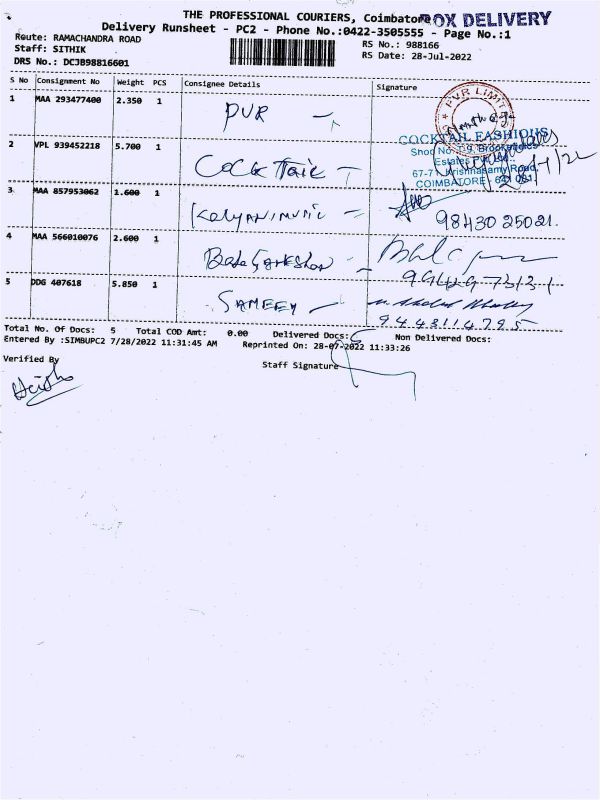 THE PROFESSIONAL COURIERS, Coimbatore
BOX DELIVERY
Delivery Runsheet - PC2 - Phone No.:0422-3505555 - Page No.:1
Route: RAMACHANDRA ROAD
RS No.: 988166
Staff: SITHIK
RS Date: 28-Jul-2022
DRS No.: DCJB98816601
S No Consignment No Weight PCS Consignee Details Signature
1 MAA 293477400 2.350 1 PVR
PVR LIMIT
2 VPL 939452218 5.700 1 Cock Tail
COCKTAIL FASHIONS
Shop No.
Brookefields
Estates
67-71, Krishnasamy Road,
COIMBATORE - 641 001
3 MAA 857953062 1.600 1
98430 25021.
4 MAA 566010076 2.600 1
5 DDG 407618 5.850 1 SAMEEY
9443114795
Total No. Of Docs: 5 Total COD Amt: 0.00 Delivered Docs: Non Delivered Docs:
Entered By :SIMBUPC2 7/28/2022 11:31:45 AM Reprinted On: 28-07-2022 11:33:26
Verified By
Staff Signature